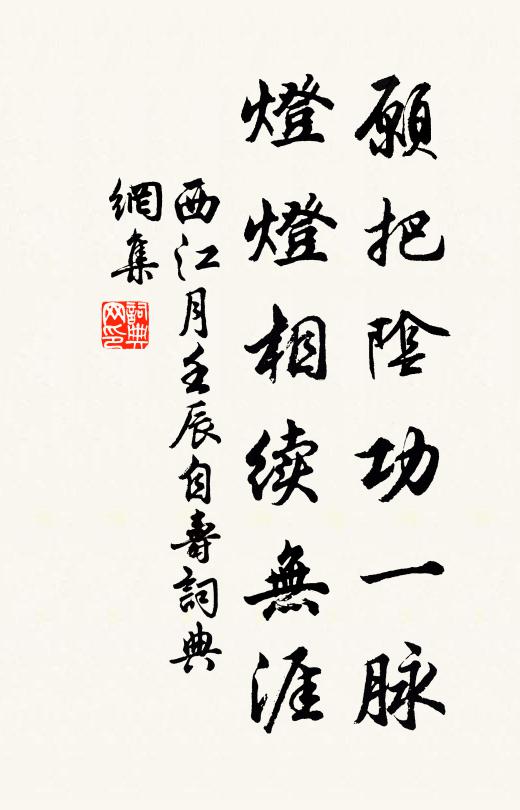 願把陰功一脉
燈燈相續無涯
西江月壬辰自壽詞典
網集
詞典
网印